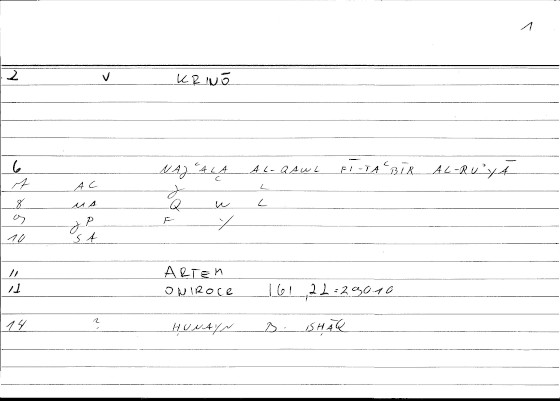 1
2 v KRINŌ
6 NAJʿALA AL-QAWL FĪ-TAʿBĪR AL-RUʾYĀ
7 AC J ʿ L
8 MA Q W L
9 JP F Y
10 SA
11 ARTEM
12 ONIROCR 161, 22 = 290 10
14 ? ḤUNAYN B. ISḤĀQ